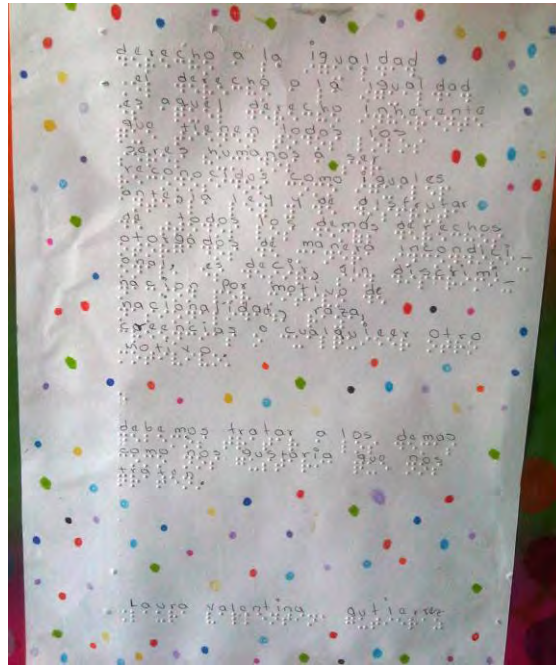 derecho a la igualdad
el derecho a la igualdad
es aquel derecho inherente
que tienen todos los
seres humanos a ser
reconocidos como iguales
ante la ley y de disfrutar
de todos los demas derechos
otorgados de manera incondici
onal, es decir, sin discrimi
nacion por motivo de
nacionalidad, raza,
creencias o cualquieer otro
motivo.
debemos tratar a los demas
como nos gustaria que nos
traten.
Laura valentina gutierrez